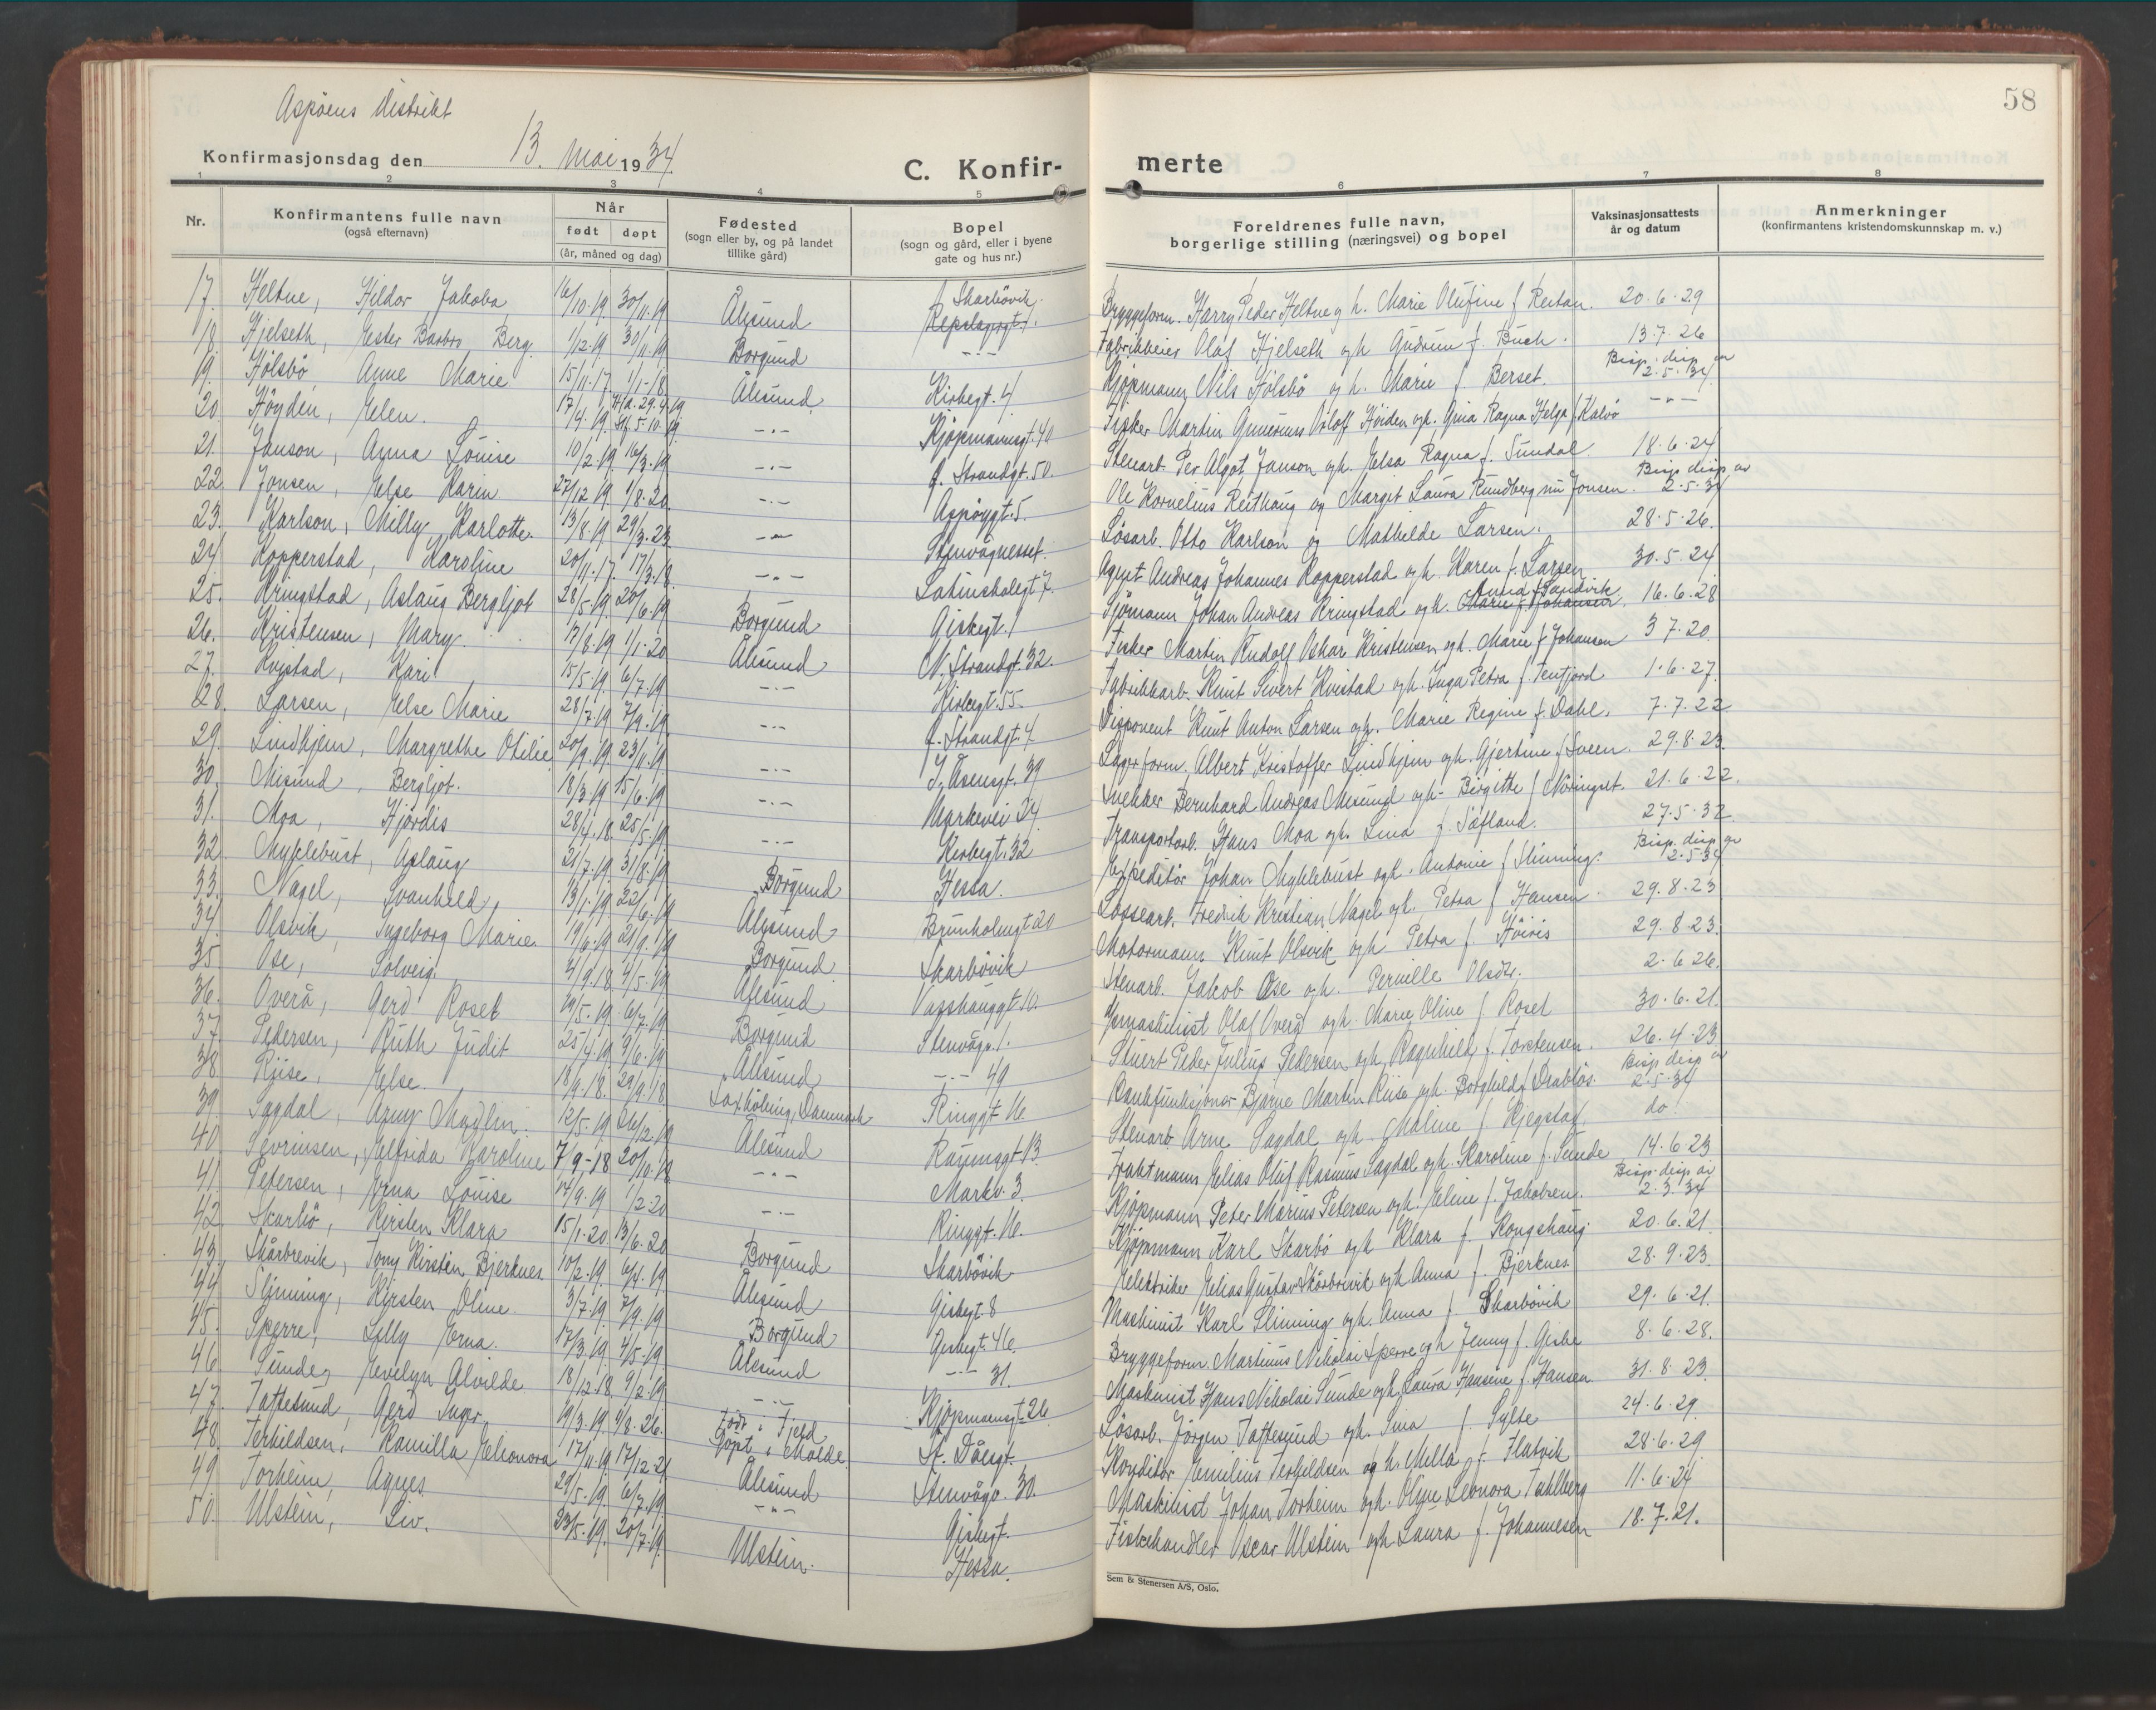 58
Aspöens distrikt
Konfirmasjonsdag den 13. Mai 1934.
C. Konfir-merte
1 2 3 4 5 6 7 8
Nr.
Konfirmantens fulle navn
(også efternavn)
Når
født døpt
(år, måned og dag)
Fødested
(sogn eller by, og på landet
tillike gård)
Bopel
(sogn og gård, eller i byene
gate og hus nr.)
Foreldrenes fulle navn,
borgerlige stilling (næringsvei) og bopel
Vaksinasjonsattests
år og datum
Anmerkninger
(konfirmantens kristendomskunnskap m. v.)
17. Heltne, Hildor Jakoba 16/10.19. 30/11.19 Ålesund Skarbövik. Bryggeform. Harry Peder Heltne og h. Marie Olufine f. Reitan. 20.6.29
18. Hjelseth, Ester Barbro Berg. 1/12.19 30/11.19 Borgund -"- Fabrikkeier Olaf Hjelseth og h. Gudrun f. Buch. 13.7.26
19. Hölsbö, Anne Marie 15/11.17 1/1-18 Ålesund Kirkegt. 4 Kjöpmann Nils Hölsbö og h. Marie f. Berset. Bisp. disp. av 2.5.34
20. Höyden, Helen. 17/4.19. -"- Kjöpmannsgt. 40 Fisker Martin Gunerius Oloff Höiden og h. Gina Ragna Helga f. Kalvö -"-
21. Janson, Anna Louise 10/2.19 16/3.19 -"- Strandgt. 50. Stenarb. Per Algot Janson og h. Elsa Ragna f. Sundal 18.6.24
22. Jonsen, Else Karin 27/12 19. 1/8.20. -"- Aspögt. 5. Ole Kornelius Reithaug og Margit Laura Rundberg nu Jonsen. Bisp. disp. av 2.5.34
23. Karlson, Milly Karlotte. 13/8.19 29/3.23 -"- Stenvågnesset. Lösarb. Otto Karlson og Mathilde Larsen. 28.5.26.
24 Kopperstad, Karoline 20/11.17. 17/3.18. -"- Latinskolegt 7. Agent Andreas Johannes Kopperstad og h. Karen f. Larsen 30.5.24
25. Kringstad, Aslaug Bergljot 28/5.19. 20/6.19 Borgund Giskegt. 1 Sjömann Johan Andreas Kringstad og h. Sandvik 16.6.28
26. Kristensen, Mary. 17/8.19 1/1.20 Ålesund N. Strandgt. 32. Fisker Martin Rudolf Oskar Kristensen og h. Marie f. Johansen 3 7.20.
27. Kvistad, Kari 15/5.19. 6/7.19 -"- Kirkegt. 55. Fabrikkarb. Knut Sivert Kvistad og h. Inga Petra f. Tentjord 1.6.27.
28. Larsen, Else Marie 28/7.19 7/9.19. -"- Strandgt. 4 Disponent Knut Anton Larsen og h. Marie Regine f. Dahl. 7.7.22
29. Lindhjem, Margrethe Otilie 20/9.19. 23/11.19. -"- Åsengt. 39 Lagerform. Albert Kristoffer Lindhjem og h. Gjertine f. Sveen. 29.8.23.
30. Misund, Bergljot. 18/3.19 15/6.19 -"- Markevei 24. Snekker Bernhard Andreas Misund og h. Birgitte f. Nöringset. 21.6.22.
31. Moa, Hjördis 28/4.18 25/5.19. -"- Kirkegt. 32 Transportarb. Hans Moa og h. Lina f. Söfland. 27.5.32
32. Myklebust, Aslaug 21/7.19. 31/8.19 Borgund Hessa. Expeditör Johan Myklebust og h. Antonie f. Slinning. Bisp. disp. av 2.5.34
33. Nagel, Svanhild, 13/1.19 22/6.19 Ålesund Brunholmgt 20 Lossearb. Fredrik Kristian Nagel og h. Petra f. Hansen 29.8.23
34. Olsvik, Ingeborg Marie. 19/6.19 21/9.19 Borgund Skarbövik Motormann Knut Olsvik og h Petra f. 29.8.23.
35 Ose, Solveig. 4/9.18. 4/5.19 Ålesund Vasshauggt. 10. Stenarb. Jakob Ose og h. Pernille Olsdtr. 2.6.26.
36. Overå, Gerd Roset 29/5.19. 6/7.19 Borgund Stenvågn. 1. Olaf Overå og h. Marie Oline f. Roset 30.6.21.
37. Pedersen, Ruth Judit 25/4.19 9/6.19 Ålesund -"- 49 Stuert Peder Julius Pedersen og h. Ragnhild f. Torstensen. 26.4.23
38 Riise, Else. 18/9.18. 29/9.18 Danmark Ringgt. 16 Bankfunksjonær Bjarne Martin Riise og h. Borghild f. Drabløs. Bisp. disp. av 2.5.34
39. Sagdal, 12/5.19 26/12.19 Ålesund 13. Stenarb. Arne Sagdal og h. Maline f. do.
40. Sevrinsen, Elfrida Karoline 7/9.18 20/10.18 -"- Markv. 3. Fraktmann Elias Oluf Rasmus Sagdal og h. Karoline f. Sunde 14.6.23
41. Petersen, Erna Louise 17/9.19 1/2 20 -"- Ringgt. 16. Kjöpmann Peter Marius Petersen og h. Eline f. Jakobsen. Bisp. disp. av 2.3.34
42. Skarbö, Kirsten Klara 15/1.20 13/6.20 Borgund Skarbövik Kjöpmann Karl Skarbö og h Klara f. Kongshaug 20.6.21.
43. Skårbrevik, Tony Kirstin Bjerknes 10/2.19. 6/4.19. Ålesund Giskegt. 8 Elektriker Elias Gustav Skårbrevik og h Anna f. Bjerknes. 28.9.23.
44 Slinning, Kirsten Oline. 3/7.19. 7/9.19 Borgund Giskegt. 46. Maskinist Karl Slinning og h. Anna f. Skarbövik 29.6.21.
45. Sperre, Lilly Erna. 17/3.19. 4/5.19. Ålesund -"- 31. Bryggeform. Martinus Nikolai Sperre og h Jenny f. Giske 8.6.28.
46 Sunde, Evelyn Alvilde. 18/12.18 9/2.19 -"- Kjöpmannsgt. 26 Maskinist Hans Nikolai Sunde og h. Laura Hansine f. Hansen 31.8.23.
47. Taftesund, Gerd Inger, 19/3.19. 9/8.26. Födt i Fjeld Döpt i Molde. St. Dålegt. Lösarb. Jörgen Taftesund og h. Sina f. Sylte 24.6.29.
48. Terkildsen, Kamilla Eleonora 17/11.19 17/12.21 Ålesund Stenvågn. 30. Konditor Emilius Terkildsen og h. Milla f. Flatvik 28.6.29
49 Torheim, Agnes 29/5.19. 6/7.19. -"- Giskegt. Maskinist Johan Torheim og h. Olga Leonora f. Dahlberg 11.6.24
50. Ulstein, Liv. 23/5.19. 20/7.19. Ulstein. Hessa. Fiskehandler Oscar Ulstein og h. Laura f. Johannesen 18.7.21.
Sem & Stenersen A/S, Oslo.